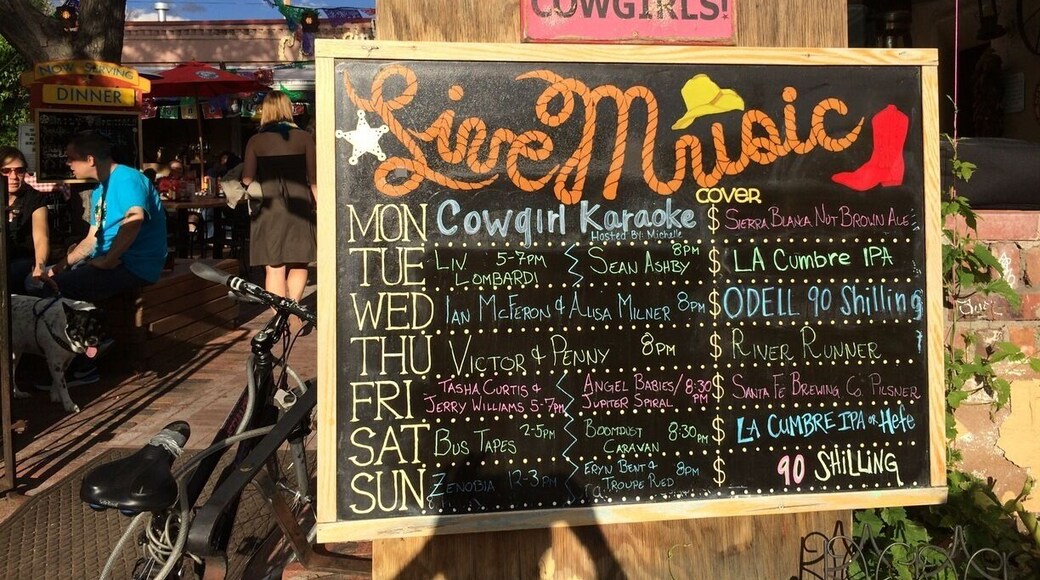 COWGIRLS!
NOW SERVING
DINNER
Live Music
COVER
MON Cowgirl Karaoke $ SIERRA BLANKA NUT BROWN ALE
Hosted By: Michelle
TUE LIV LOMBARDI 5-7PM SEAN ASHBY 8PM $ LA CUMBRE IPA
WED IAN MCFERON & ALISA MILNER 8PM $ ODELL 90 Shilling
THU VICTOR & PENNY 8PM $ RIVER RUNNER
FRI TASHA CURTIS & JERRY WILLIAMS 5-7PM ANGEL BABIES/ JUPITER SPIRAL 8:30 PM $ SANTA FE BREWING CO. PILSNER
SAT BUS TAPES 2-5PM BOOMDUST CARAVAN 8:30PM $ LA CUMBRE IPA OR Hefe
SUN ZENOBIA 12-3PM ERYN BENT & TROUPE RED 8PM $ 90 SHILLING